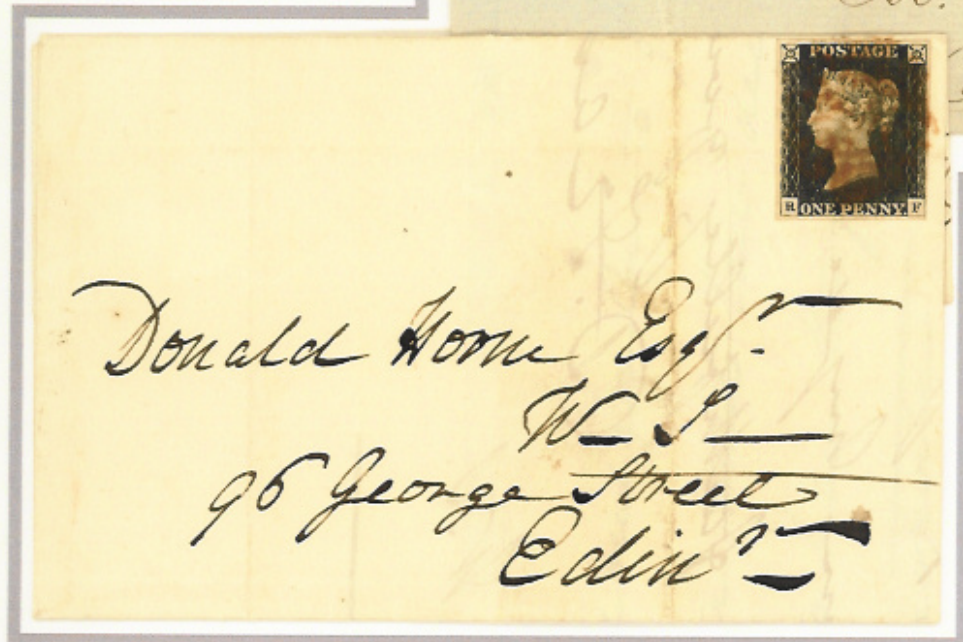 POSTAGE
R ONE PENNY F
Donald Horne Esqr.
W S
96 George Street
Edinr